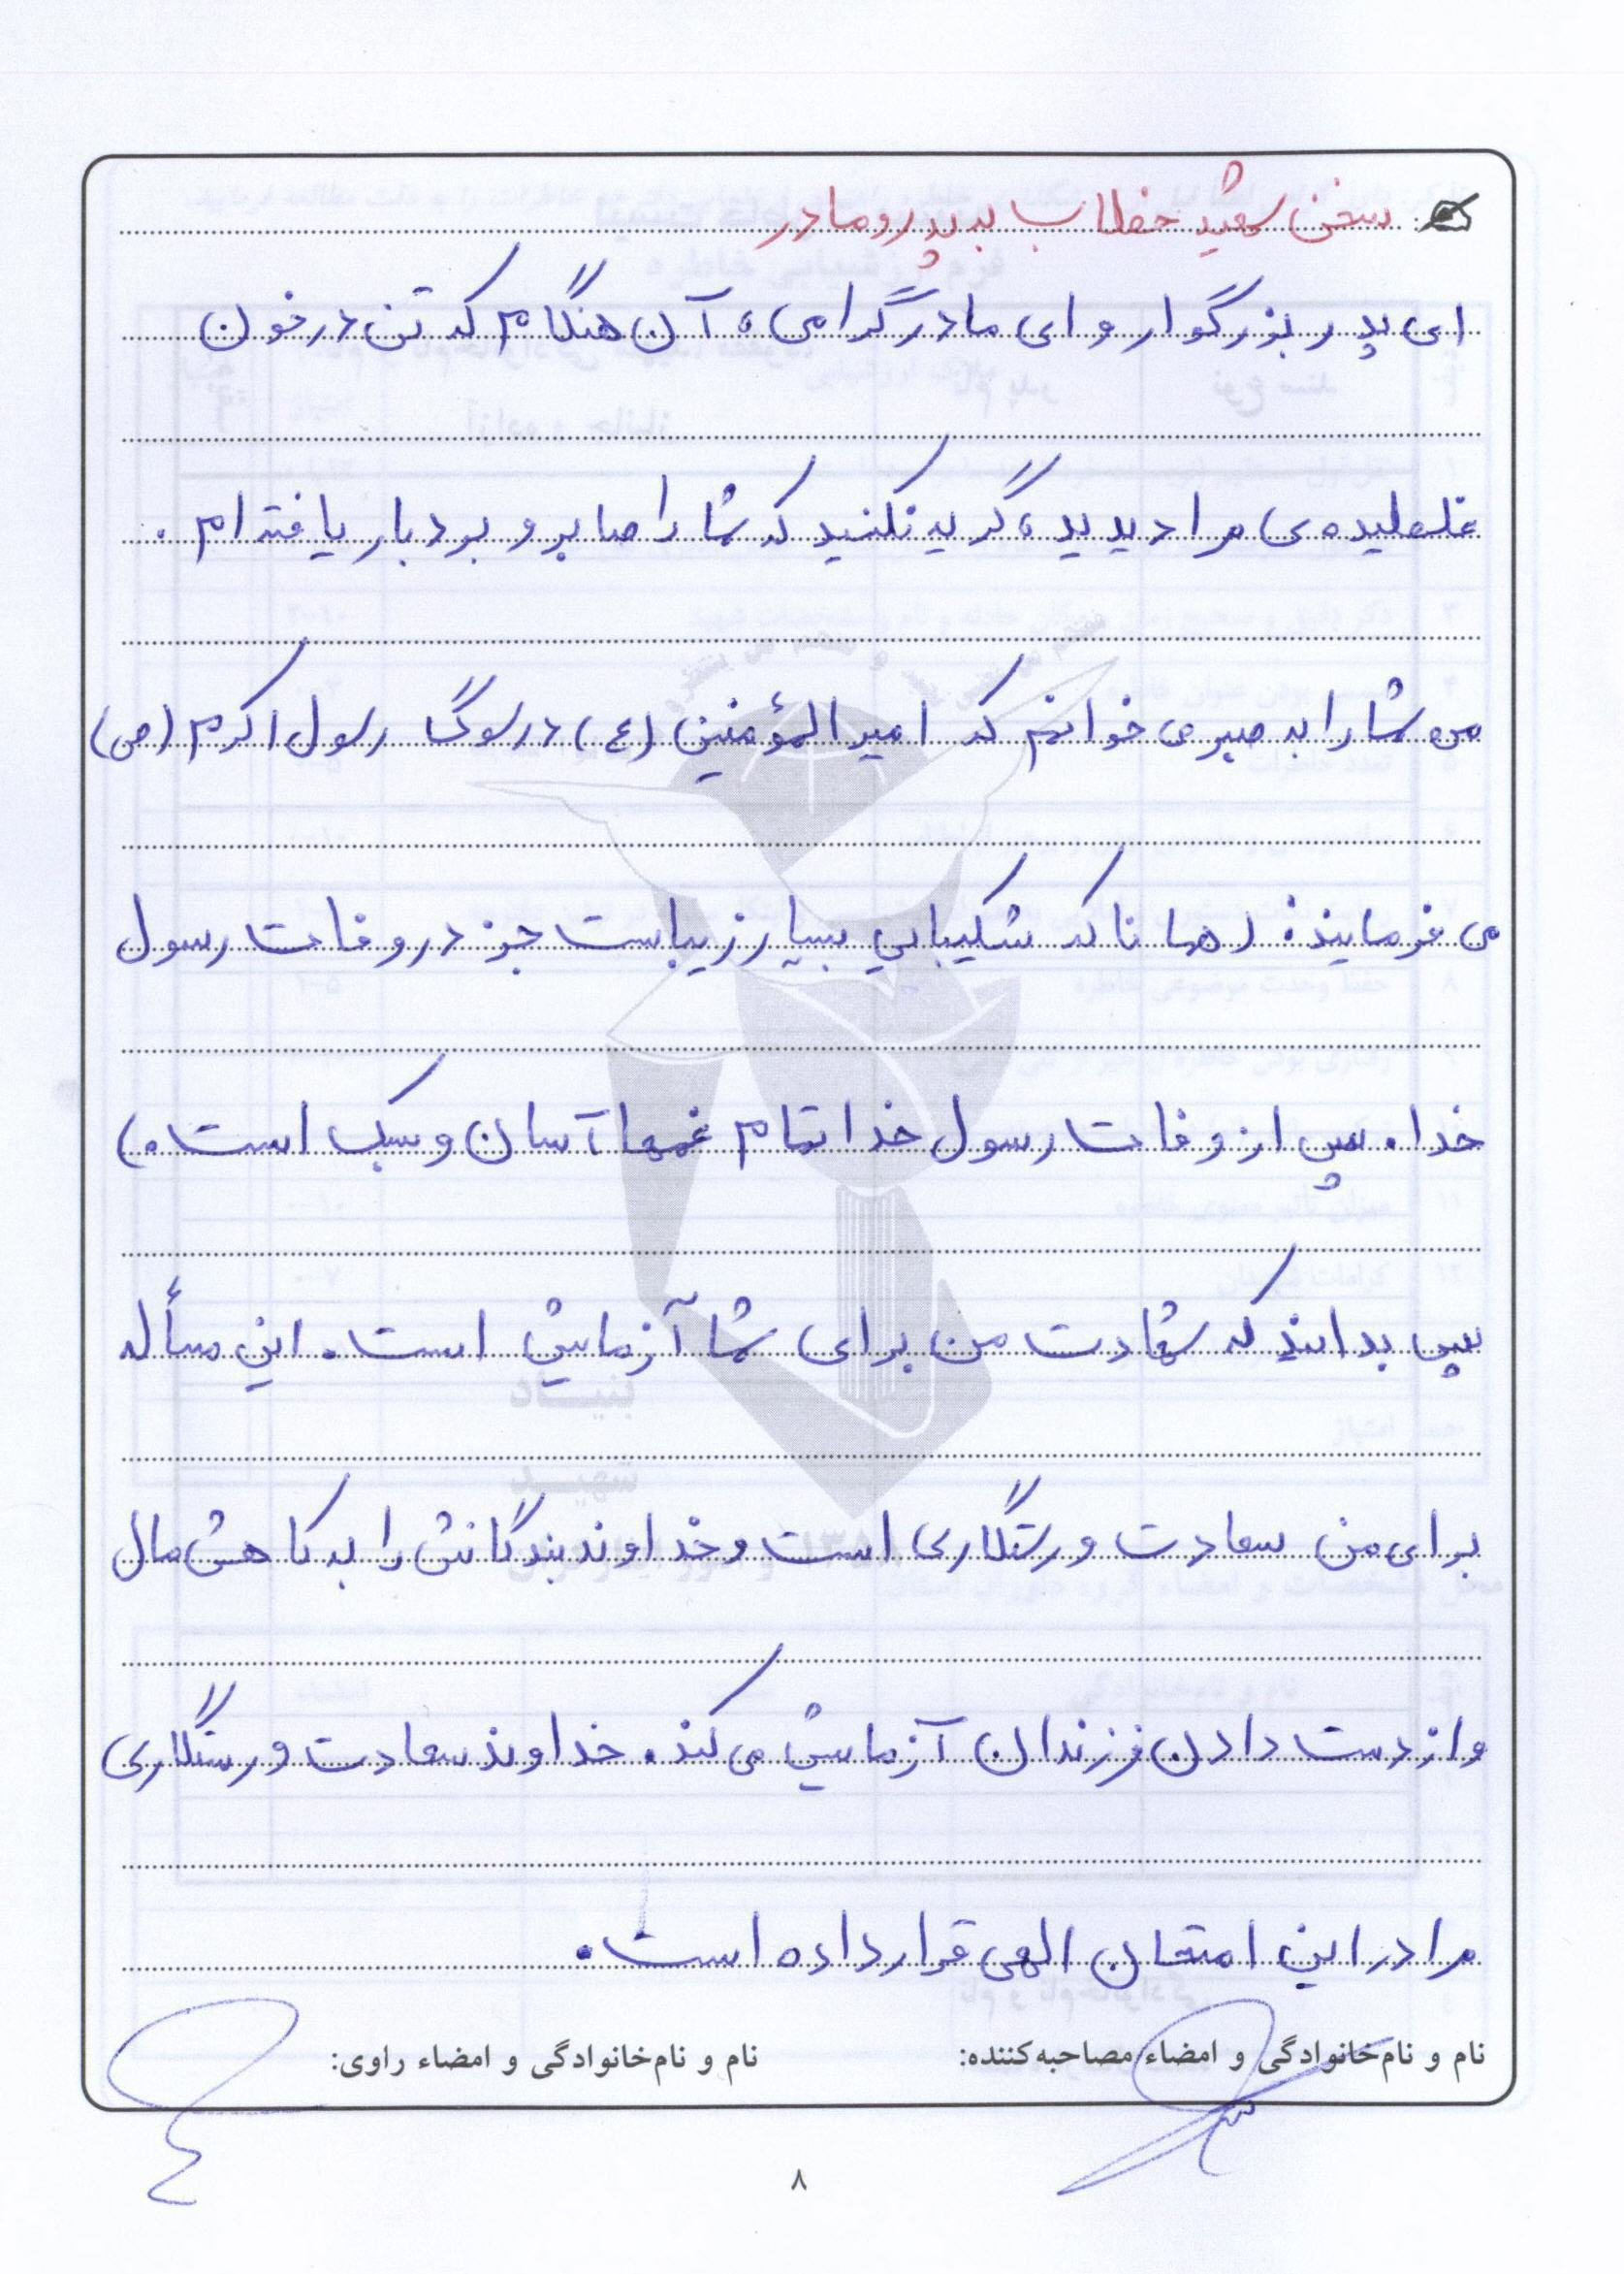 سخن شهید خطاب به پدر و مادر
ای پدر بزرگوار و ای مادر گرامی، آن هنگام که تن در خون
غلطیده‌ی مرا دیدید، گریه نکنید که شما را صابر و بردبار یافته ام.
من شما را به صبر می خوانم که امیرالمؤمنین (ع) در سوگ رسول اکرم (ص)
می فرمایند: (همانا که شکیبایی بسیار زیباست جز در وفات رسول
خدا. پس از وفات رسول خدا تمام غمها آسان و سبک است.)
پس بدانید که شهادت من برای شما آزمایش است. این مسأله
برای من سعادت و رستگاری است و خداوند بندگانش را به کاهش مال
و از دست دادن فرزندان آزمایش می کند. خداوند سعادت و رستگاری
مرا در این امتحان الهی قرار داده است.
نام و نام‌خانوادگی و امضاء مصاحبه‌کننده: نام و نام‌خانوادگی و امضاء راوی:
۸